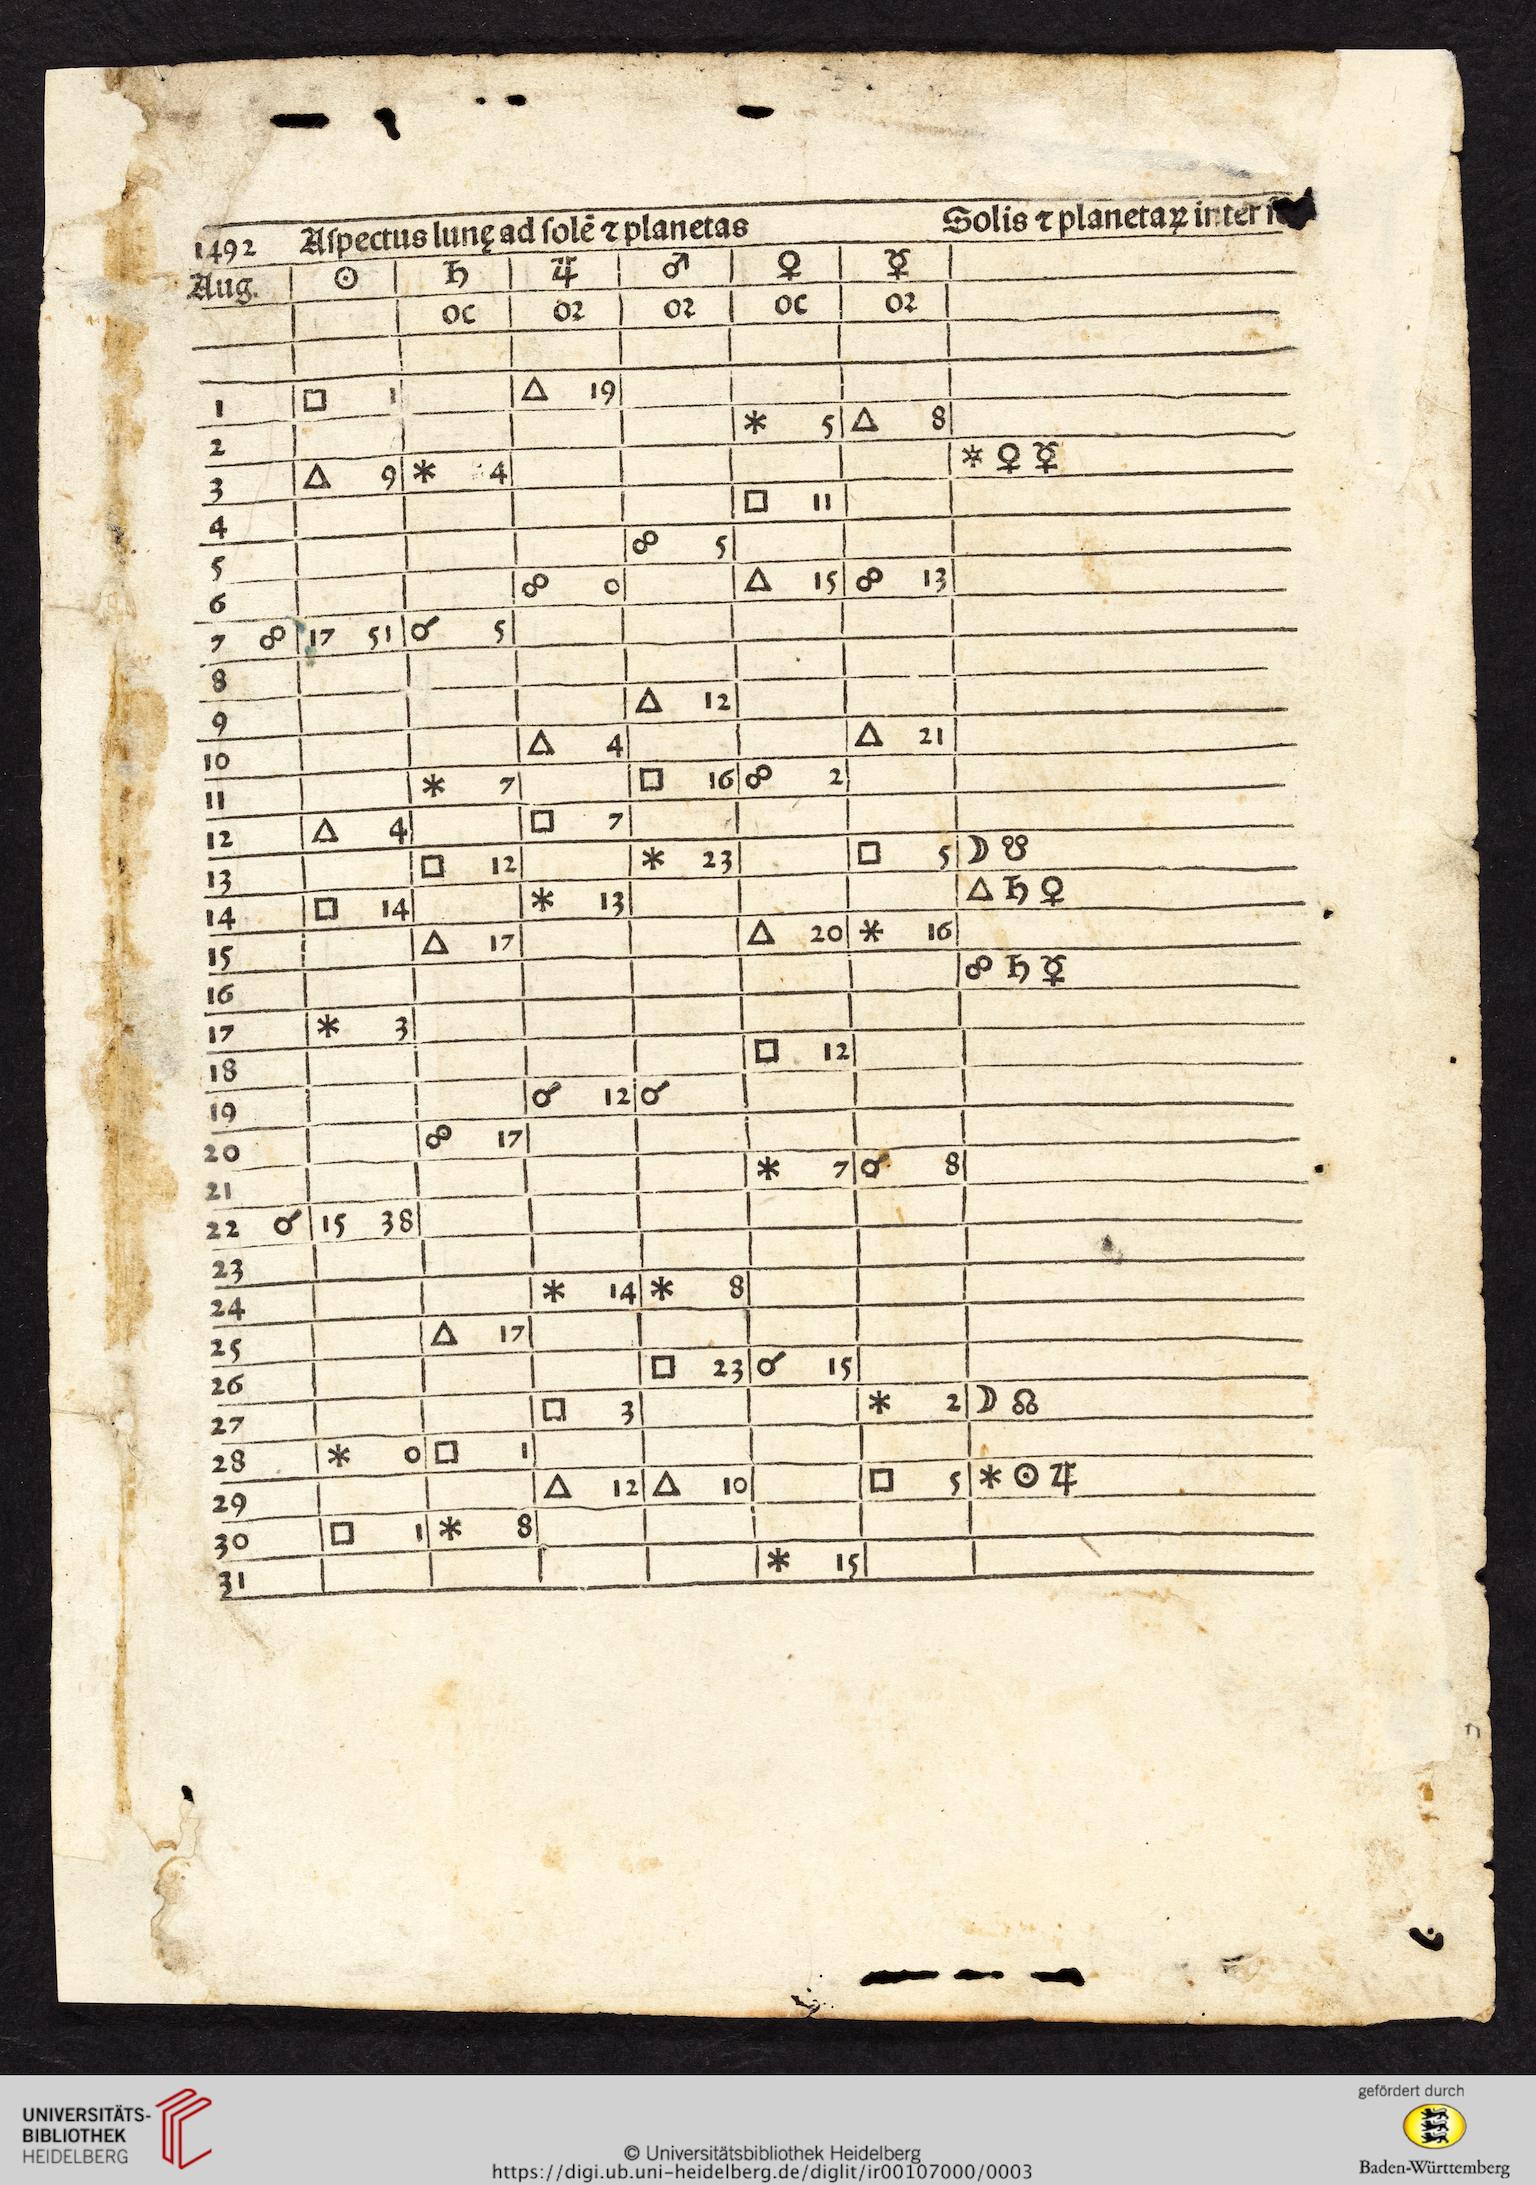 1492 Aſpectus lunę ad ſolē ⁊ planetas Solis ⁊ planetaꝝ inter
Aug. ☉ ♄ ♃ ♂ ♀ ☿
oc oꝛ oꝛ oc oꝛ
1 □ 1 △ 19
2 ⚹ 5 △ 8
3 △ 9 ⚹ 4 ⚹ ♀ ☿
4 □ 11
5 ☍ 5
6 ☍ 0 △ 15 ☍ 13
7 ☍ 17 51 ☌ 5
8
9 △ 12
10 △ 4 △ 21
11 ⚹ 7 □ 16 ☍ 2
12 △ 4 □ 7
13 □ 12 ⚹ 23 □ 5 ☽ ☋
14 □ 14 ⚹ 13 △ ♄ ♀
15 △ 17 △ 20 ⚹ 16
16 ☍ ♄ ☿
17 ⚹ 3
18 □ 12
19 ☌ 12 ☌
20 ☍ 17
21 ⚹ 7 ☌ 8
22 ☌ 15 38
23
24 ⚹ 14 ⚹ 8
25 △ 17
26 □ 23 ☌ 15
27 □ 3 ⚹ 2 ☽ ☊
28 ⚹ 0 □ 1
29 △ 12 △ 10 □ 5 ⚹ ☉ ♃
30 □ 1 ⚹ 8
31 ⚹ 15
UNIVERSITÄTS-
BIBLIOTHEK
HEIDELBERG
© Universitätsbibliothek Heidelberg
https://digi.ub.uni-heidelberg.de/diglit/ir00107000/0003
gefördert durch
Baden-Württemberg